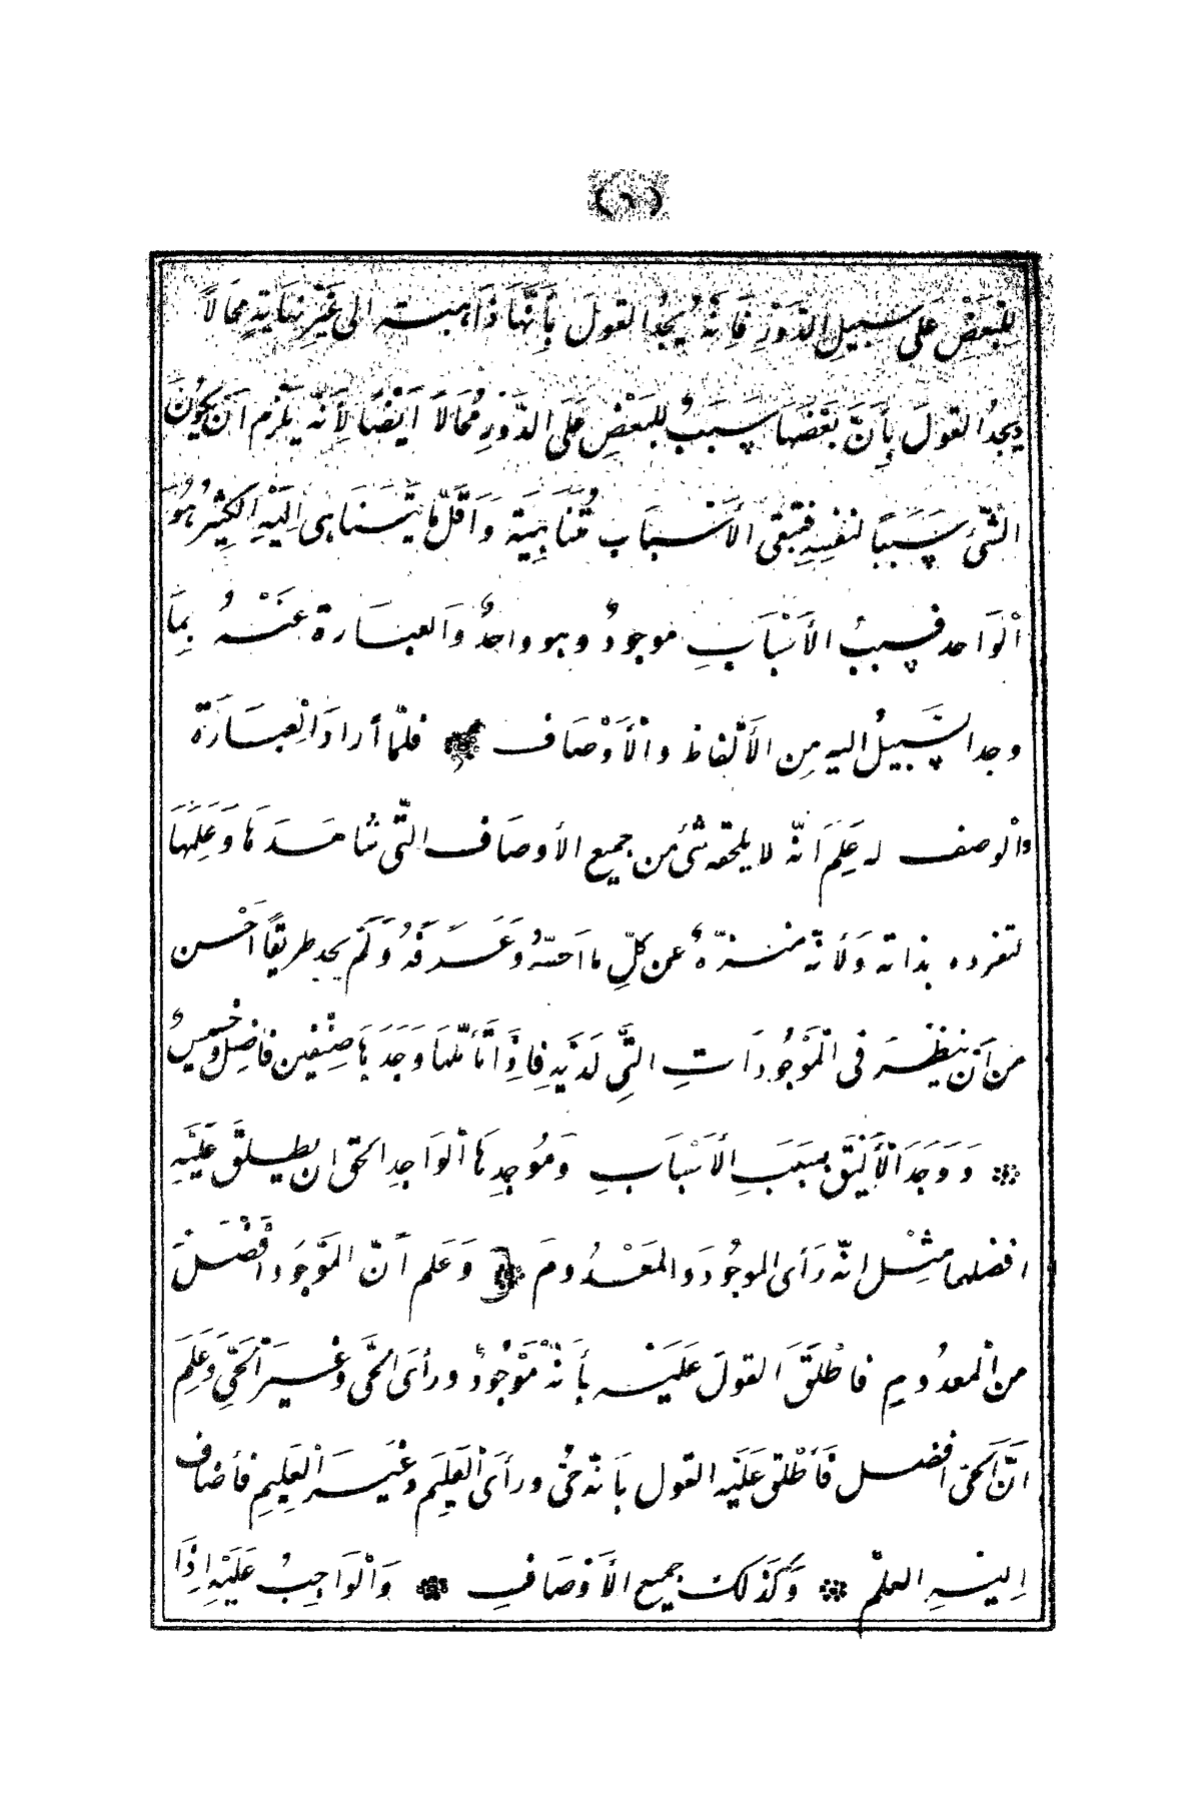 (٦)
للبَعَضْ عَلى سَبيلِ الدَّوْرِ فَاِنَّهُ يَجِدُ القولَ بِأَنَّهَا ذَاهبَةٌ الى غَيْرِ نِهَايَةٍ مُحَالًا
وَيجدُ القولَ بِأَنَّ بَعْضَهَا سَبَبٌ لِلبَعْضِ عَلَى الدَّوْرِ مُحَالاً اَيْضًا لِأَنَّهُ يَلْزم اَنْ يَكُوُنَ
الشَّئُ سَبَبًا لنفسِهِ فَتبقى الأَسْبَاب مُتَنَاهِيَةً وَأَقَلُّ مَا يَتَنَاهى اِلَيْهِ الكَثِيْرُ هُوَ
اْلوَاحد فسببُ الأَسْبَابِ موجودٌ وهو واحدٌ وَالعبَارة عَنْهُ بِمَا
وجد السَّبِيلُ اليه مِن الأَلْفَاظ وَالأَوْصَاف ۞ فلمّا أراد اَلْعِبَارَةَ
واْلوصف له عَلِمَ اَنّه لا يلحقه شئٌ من جميع الأوصَاف الَّتى شَاهَدَهَا وَعَلِمَهَا
لتفرده بذاته وَلأنّه مُنزّهٌ عن كلِّ مااَحسّهُ وَعَرَفَهُ وَلَمْ يجد طريقًا اَحْسن
من اَنْ يَنظُرَ فى الْمَوْجُودَاتِ الَّتِى لَدَيْهِ فَاِذَا تَأَمَّلَهَا وَجَدَهَا صِنْفَيْن فَاضِلٌ وخَسيسٌ
۞ وَوَجَدَ الْأَلْيَقَ بِسَبَبِ الأَسْبَابِ وَمُوجِدِهَا اْلوَاحِدِ الحَقّ اَن يطلقَ عَلَيْهِ
افضلهما مثْل انّه رَأى الموجُودَ والمَعْدُومَ ۞ وَعَلم أَنّ المَوْجُودَ اَفْضَلُ
من الْمعدُومِ فاطْلَقَ القولَ عَلَيْه بأَنّهُ مَوْجُودٌ ورأىَ الحَّى وغيرَ الحَىِّ وَعَلِمَ
اَنَّ الحَىّ افضل فَأطْلق عَلَيْه القول بِاَنّهُ حَىٌّ ورأىَ العَلِيَم وَغَيَر الْعَلِيمِ فأضَاف
اِليهِ العلْم ۞ وَكَذَلكَ جميع الأَوْصَافِ ۞ وَالْوَاجِبُ عَلَيْهِ اِذَا